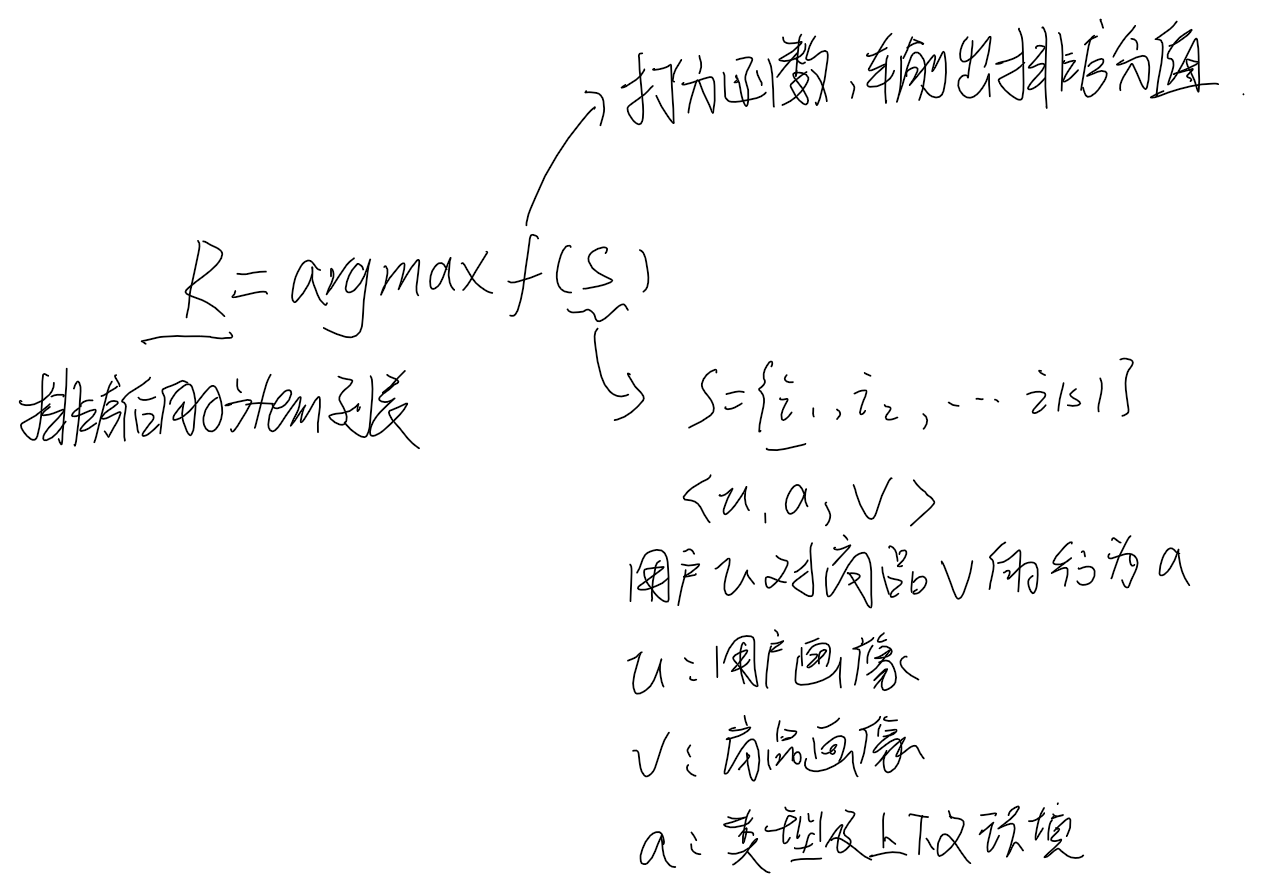 打分函数,输出排序分值.
R = argmax f(S)
排序后的item列表
S={i₁, i₂, ... i|s|}
<u, a, v>
用户u对商品v的行为a
u:用户画像
v:商品画像
a:类型及上下文环境